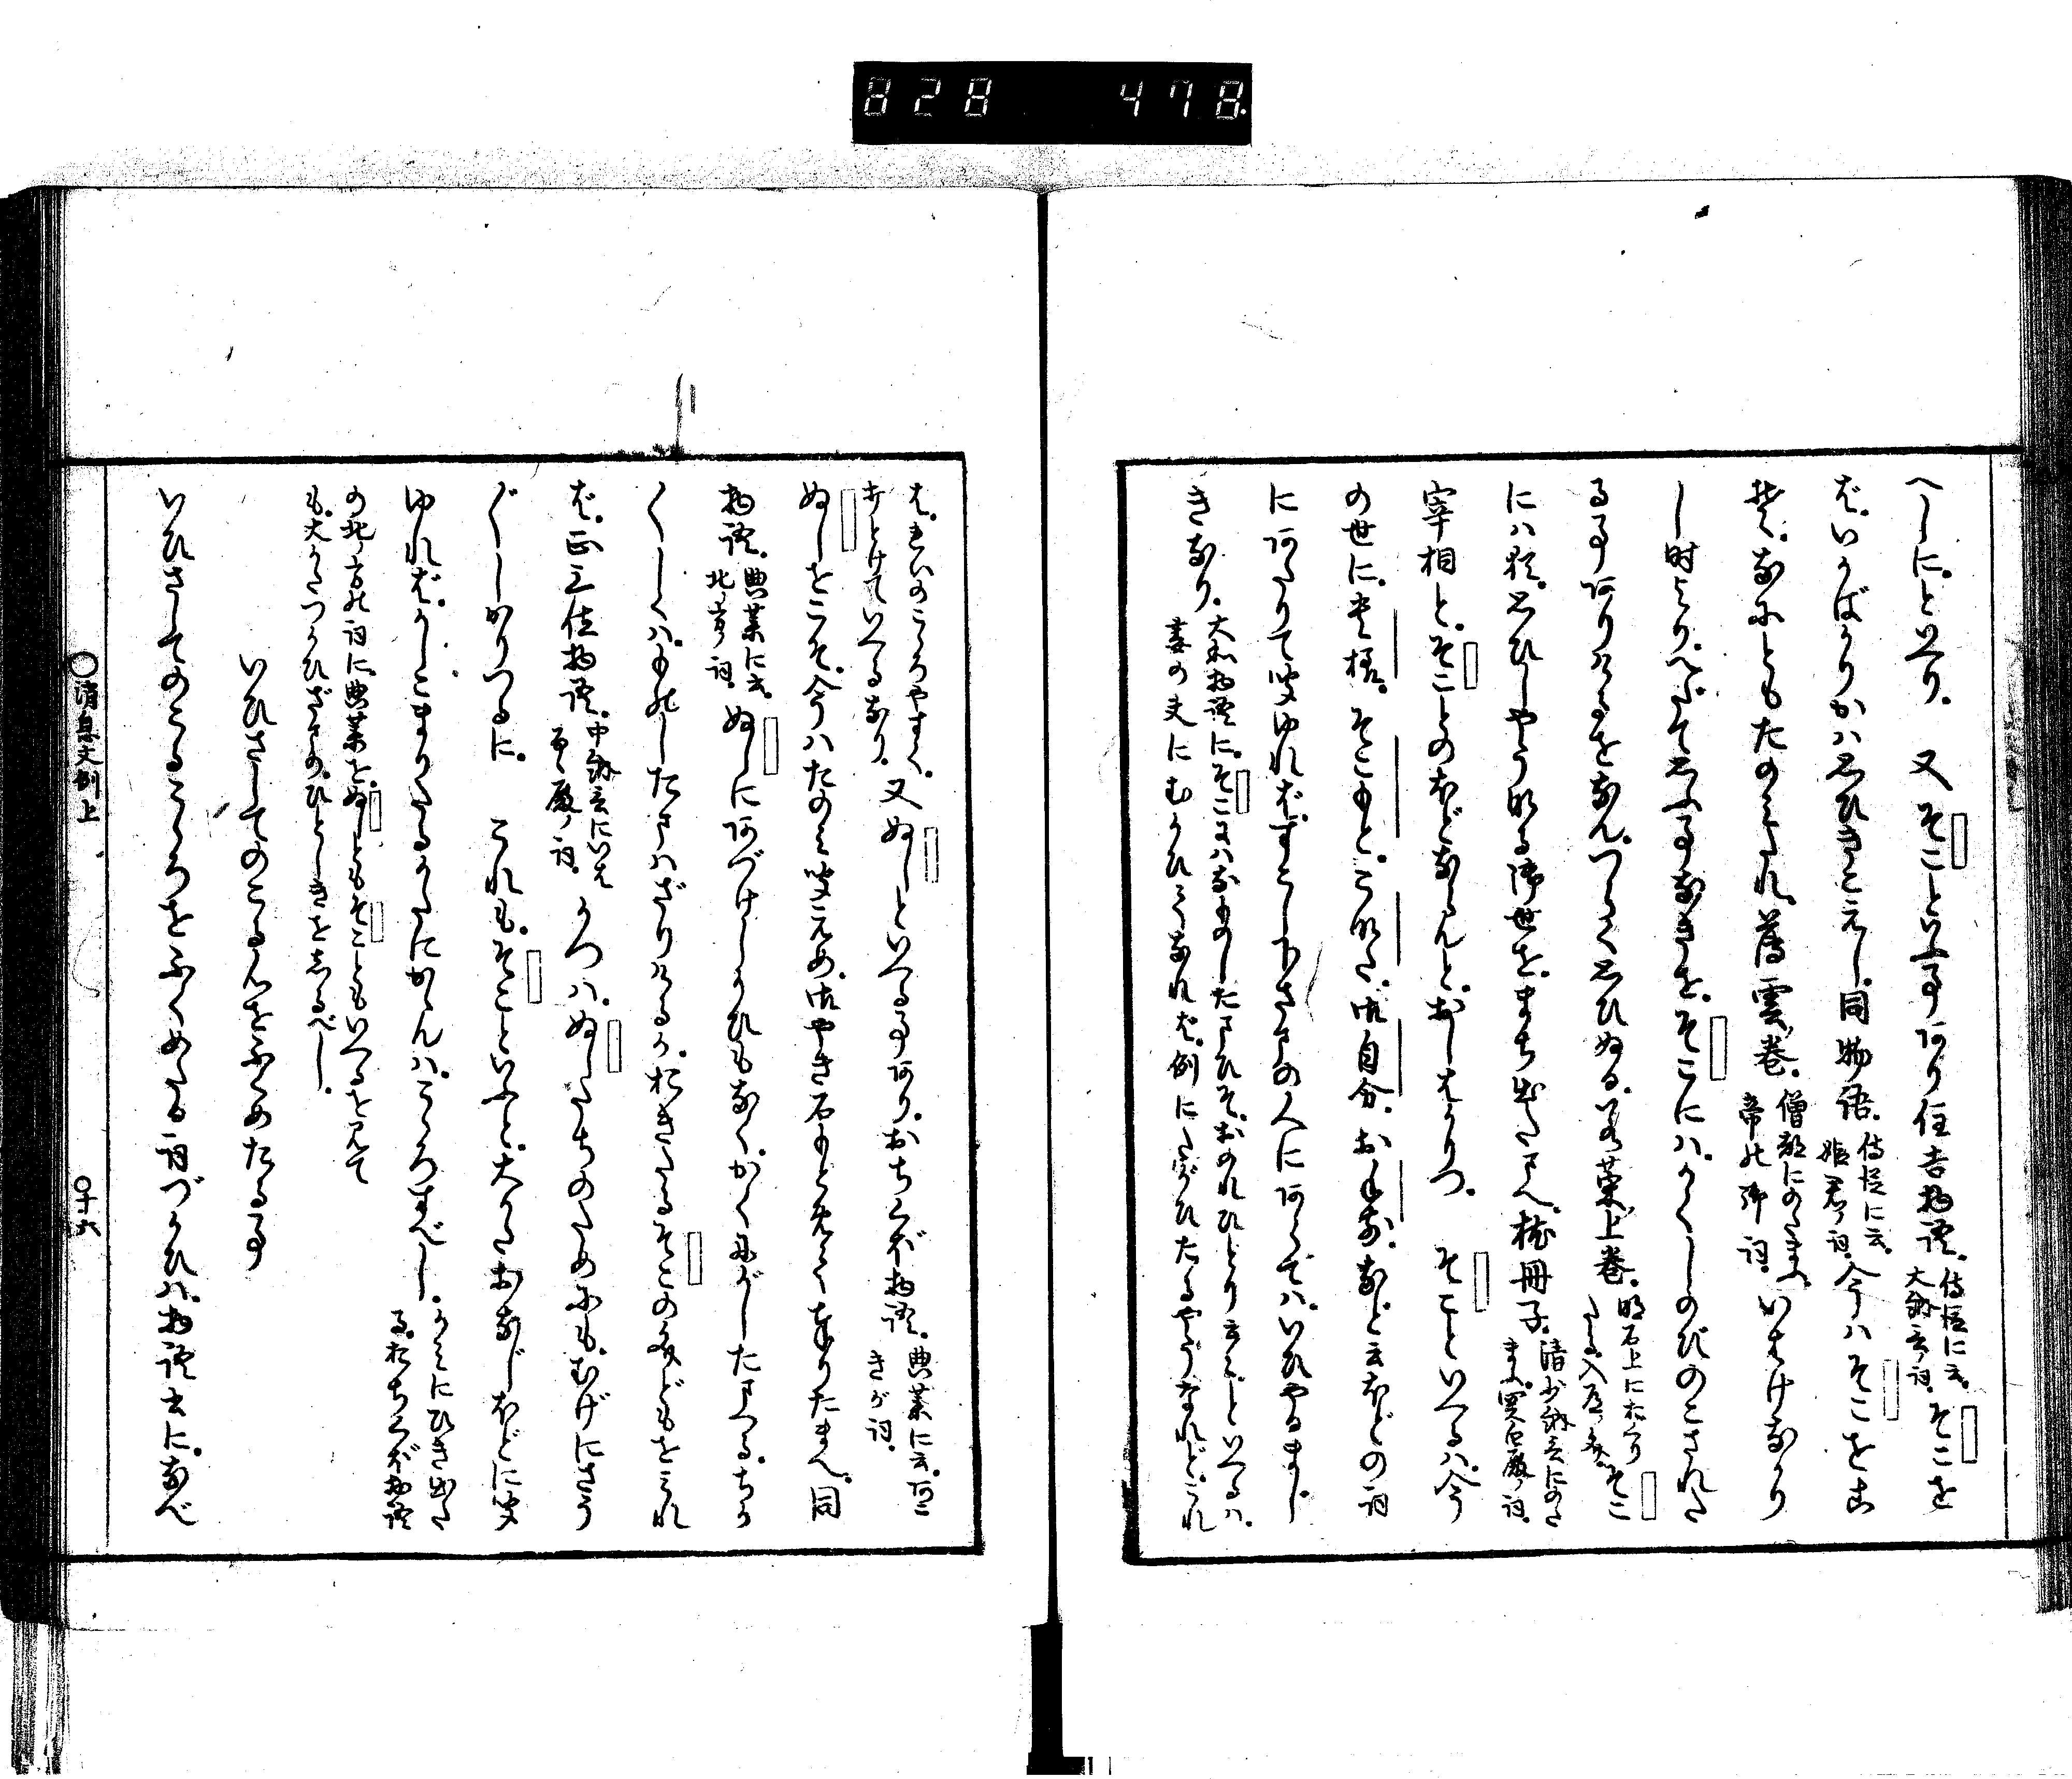 へしに。といへり。又そこといふ事あり住吉物語。侍従に云。大納言ノ詞。そこを
ば。いかばかりかハ思ひきこえし。同物語。侍従に云。姫君ノ詞。今ハそこをこ
そは。なにともたのミたれ。薄雲ノ巻。僧都にのたまふ。帝の御詞。いはけなかり
し時より。へだて思ふ事なきを。そこにハ。かくしのびのこされた
る事ありけるをなん。つらく思ひぬる。若菜上巻。明石上におくりたる入道ノ文。そこ
にハ猶。思ひしやうなる御世を。まち出たまへ。枕冊子。清少納言にのたまふ。ノ詞。
宰相と。そことのほどならんと。おしはかりつ。 そこといへるハ。今
の世に。貴様。そこもと。こなた。御自分。お手前。など云ほどの詞
にあたりて聞ゆれば。すこし下ざまの人にあらでハ。いひやるまじ
きなり。大和物語に。そこにハなものしたまひそ。おのれひとりまミえ。といへるハ。
妻の夫にむかひてなれば。例にたがひたるやうなれど。これ
は。れいのこゝろやすく。
うちとけていへるなり。又ぬしといへる事あり。おちくぼ物語。典薬に云。あこきが詞。
ぬしをこそ。今ハたのミ聞こえめ。御やき石もとめてまゐりたまへ。同
物語。典薬に云。北ノ方ノ詞。ぬしにあづけしかひもなく。かくにがしたまへる。ちか
くしくハ。ものしたまハざりけるか。おきたるそこの文どもをミれ
ば。正三位物語。中納言にいはく 殿ノ詞。かつハ。ぬしたちのためにも。むげにさう
ぐしかりつるに。 これも。そこといふと。大かたおなじほどに聞
ゆれば。かしこまりたるかたにかゝんハ。こゝろすべし。かミにひき出たる。おちくぼ物語
の北ノ方の詞に。典薬を。ぬしともそこともいへるを見て
も。大かたつかひざまの。ひとしきをしるべし。
いひさしてのこる心をふくめたる事
いひさしてのこるこゝろをふくめたる詞づかひハ。物語書に。なべ
○消息文例上
○十九
828 478